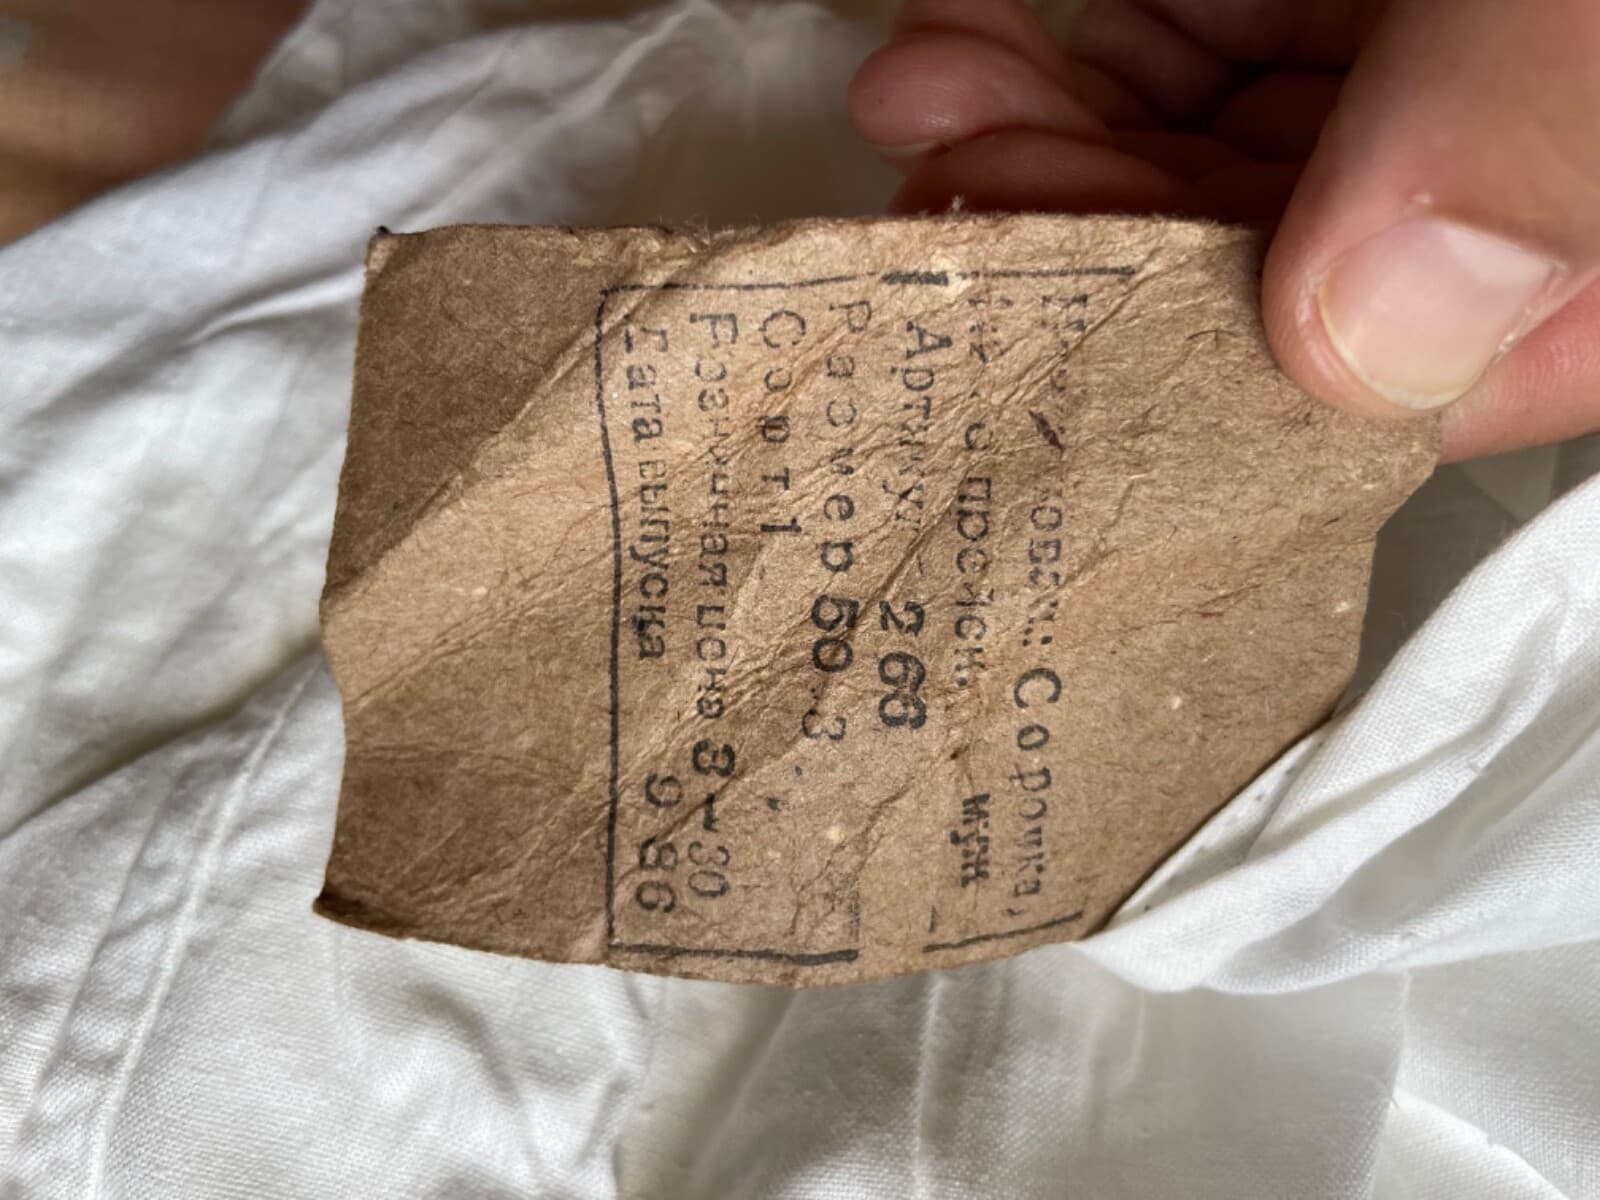 Сорочка,
муж
Артикул 266
Размер 50 3
Сорт 1
Розничная цена 3-30
Дата выпуска 9 86